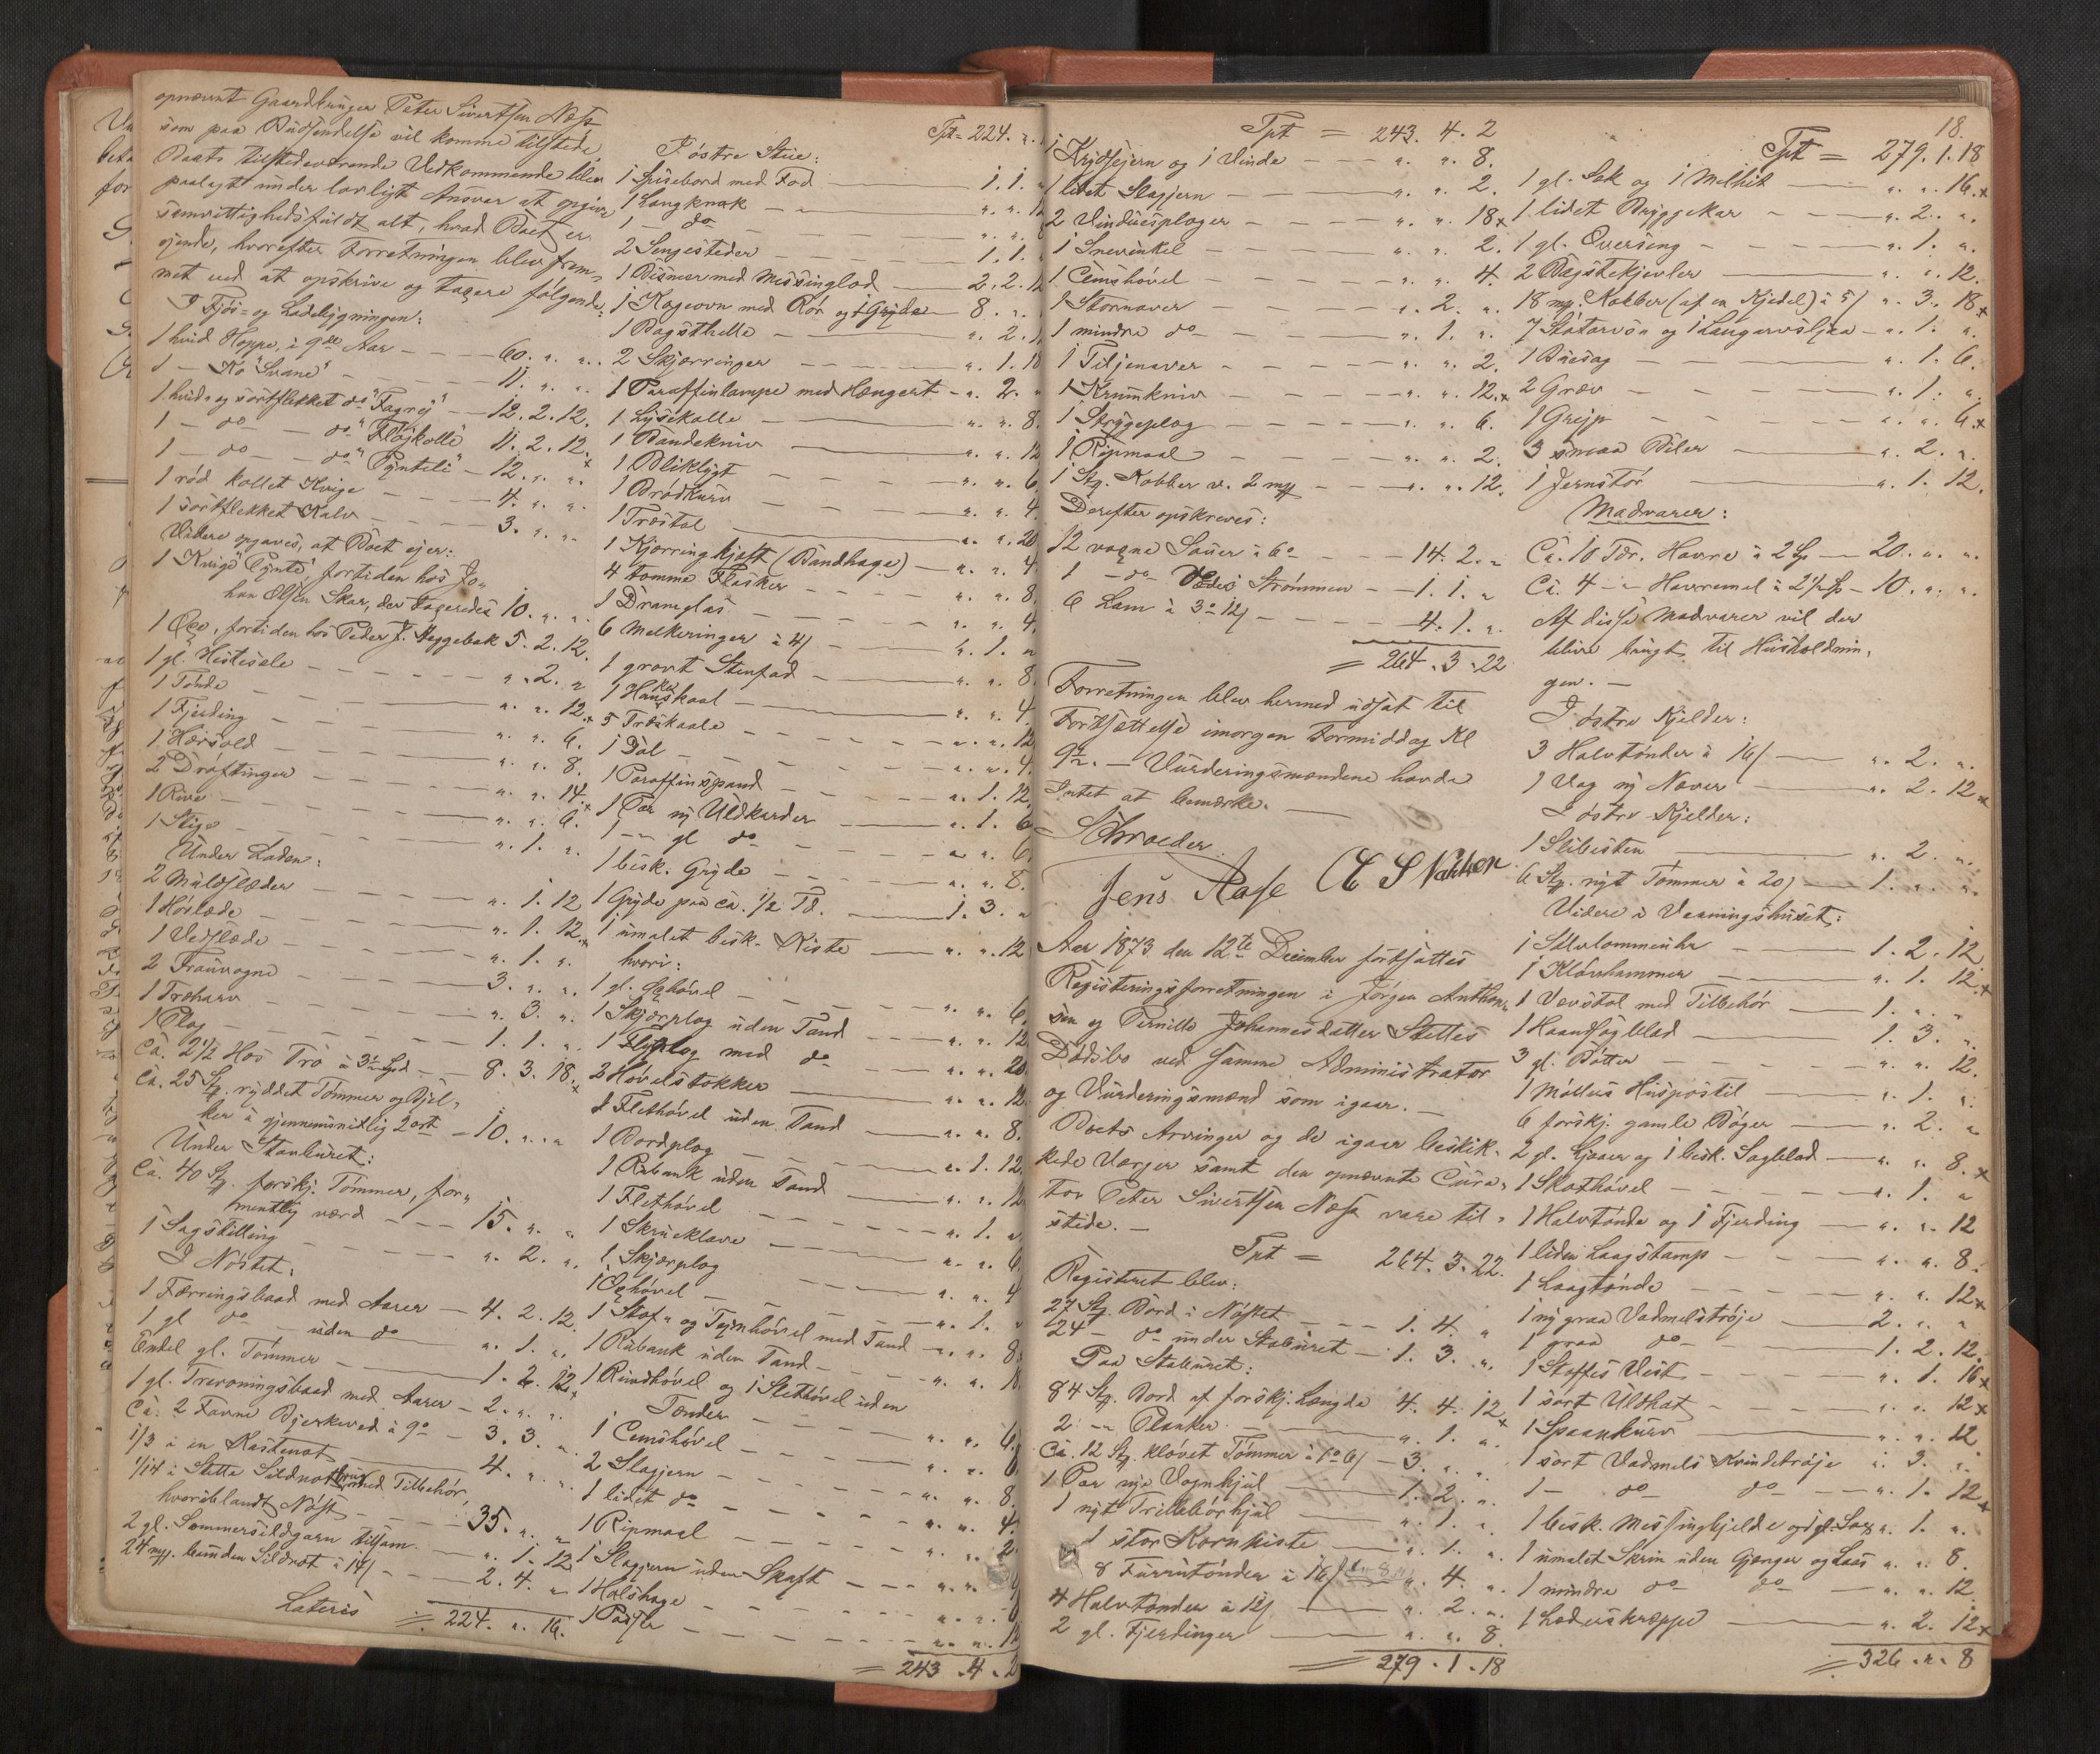 opnævnt Gaardbruger Peter Sivertsen Næss
som paa Budsendelse vil komme tilstede
Boets tilstedeværende Vedkommende blev
paalagt under lovligt Ansvar at opgive
samvittighedsfuldt alt, hvad Boet er
ejende, hvorefter Forretningen blev frem-
met ved at opskrive og taxere følgende:
I Fjøs- og Ladebygningen:
1 hvid Hoppe, i 9de Aar - - - 60. " "
1 - Ko "Svane" - - - 11. " "
1 hvid- og sortflekket do "Fagrej" - 12. 2. 12.
1 - do - - do "Fløjkolle" 11. 2. 12.
1 - do - - do "Pynteli" - 12. " "
1 rød kollet Kvige - - - 4. " "
1 sortflekket Kalv - - - 3. " "
Videre opgaves, at Boet ejer:
1 Kvige "Pynte" fortiden hos Jo-
han Olsen Skar, der taxeredes 10. " "
1 Oxe, fortiden hos Peder J. Heggebak 5. 2. 12.
1 gl. Hestesele - - - ". 2. "
1 Tønde - - - ". ". 12.
1 Fjerding - - - ". ". 6.
1 Hærsold - - - ". ". 8.
2 Drøftinger - - - ". ". 14.
1 Rive - - - ". ". 6.
1 Stige - - - ". 1. "
Under Laden:
2 Muldslæder - - - ". 1. 12
1 Høslæde - - - ". 1. 12.
1 Vedslæde - - - ". 1. "
2 Trævogne - - - 3. " "
1 Træharv - - - ". 3. "
1 Plog - - - 1. 1. "
Ca. 2 1/2 Hos Trø - - 8. 3. 18.
Ca. 25 St. ryddet Tømmer og Bjel-
ker à gjennemsnitlig 2 ort - 10. " "
Under Stavburet:
Ca. 40 St. forskj. Tømmer, for-
mentlig værd - - - 15. " "
1 Sagstilling - - - ". 2. "
I Nøstet:
1 Færringsbaad med Aarer - 4. 2. 12.
1 gl do - uden do - ". 1. "
Endel gl. Tømmer - - 1. 2. 12.
1 gl. Treroningsbaad med Aarer - 2. " "
Ca. 2 Favne Bjerkeved à 9o - 3. 3. "
1/3 i en Kastenot - - - 4. " "
1/14 i Stette Sildnotbrug med Tilbehør,
hvoriblandt Nøst - - - 35. " "
2 gl. Sommersildgarn tilsam. - ". 1. 12
24 mrk. bunden Sildnot à 14/ - 2. 4. "
Lateris = 224. ". 16.
Tpt = 224. "
I østre Stue:
1 Spisebord med Fod - 1. 1.
1 Langknak - -
1 - do
2 Sengesteder - 1. 1.
1 Bismer med Messinglod - 2. 2. 12
1 Kogeovn med Rør og 1 Gryde 8. "
1 Bagsthelle - ". 2.
2 Skjæringer - ". 1. 18
1 Paraffinlampe med Hængert - ". 2. "
1 Lysekolle - ". ". 8.
1 Baandekniv - ". ". 12
1 Bliklygt - ". ". 6.
1 Brødkurv - ". ". 4.
1 Træstol - ". ". 20
1 Kjærringkjæft (Bandhage) - ". ". 4.
4 tomme Flasker - ". ". 8.
1 Dramglas - ". ". 4.
6 Melkeringer à 4/ - ". 1. "
1 gravt Stenfad - ". ". 8.
1 Hankeskaal - ". ". 4.
5 Træskaale - ". ". 12
1 Dal - ". ". 4.
1 Paraffinspand - ". 1. 12
1 Par ny Uldkarder - ". 1. 6
1 - gl do - ". ". 6.
1 besk. Gryde - ". ". 8.
1 Gryde paa ca. 1/2 Td. - 1. 3. "
1 umalet besk. Kiste - ". ". 12
hvori:
1 gl. Oxhøvel - ". ". 6.
1 Skjærplog uden Tand - ". ". 12
1 Flyplog med do - ". ". 20
3 Høvelstokker - ". ". 12
1 Slethøvel uden Tand - ". ". 8.
1 Bordplog - ". 1. 12
1 Rubank uden Tand - ". ". 12
1 Slethøvel - ". 1. "
1 Skrueklave - ". ". 6.
1 Skjærplog - ". ". 4
1 Oxhøvel - ". 1. "
1 Staf- og Tynhøvel med Tand - ". ". 8.
1 Rubank uden Tand - ". ". 18.
1 Rundhøvel og 1 Slethøvel uden
Tænder - ". ". 6.
1 Cemshøvel - ". ". 6
2 Slagjern - ". ". 8
1 lidet do - ". ". 4.
1 Ripmaal - ". ". 2
1 Slagjern uden Skaft - - -
1 Halshage - - -
1 Passer - - - ". ". 12
= 243. 4. 2
Tpt = 243. 4. 2
1 Krydsejern og 1 Vinde - - - ". ". 8.
1 lidet Slagjern - ". ". 2.
2 Vinduesploger - ". ". 18
1 Snevinkel - ". ". 2.
1 Cemshøvel - ". ". 4.
1 Stornaver - ". 2. "
1 mindre do - ". 1. "
1 Tiljenaver - ". ". 2.
1 Krumkniv - ". ". 12.
1 Strygeplog - ". ". 6.
1 Ripmaal - ". ". 2.
1 St. Kobber v. 2 mrk - ". ". 12.
Derefter opskreves:
12 vaxne Sauer à 6o - - - 14. 2. "
1 - do Vedes Strømmen - 1. 1. "
6 Lam à 3o 12/ - - - 4. 1. "
= 264. 3. 22
Forretningen blev hermed udsat til
Fortsættelse imorgen Formiddag Kl
9 1/2. - Vurderingsmændene havde
Intet at bemærke. -
Schroeder
Jens Aase
Aar 1873 den 12te December fortsattes
Registeringsforretningen i Jørgen Anthon-
sen og Pernille Johannesdatter Stettes
Dødsbo ved samme Administrator
og Vurderingsmænd som igaar. -
Boets Arvinger og de igaar beskik-
kede Værger samt den opnævnte Cura-
tor Peter Sivertsen Næss vare til-
stede. -
Tpt = 264. 3. 22.
Registeret blev:
27 St. Bord i Nøstet - - - 1. 4. "
24 - do under Stabburet - 1. 3. "
Paa Staburet:
84 St. Bord af forskj. Længde 4. 4. 12
2 - Planker - ". 1. "
Ca. 12 St. kløvet Tømmer à 1o 6/ - 3. " "
1 Par nye Vognhjul - 1. 2. "
1 nyt Trillebørhjul - ". 1. "
1 stor Kornkiste - ". 1. "
8 Furutønder à 16/ ". 4. "
4 Halvtønder à 12/ - ". 2. "
2 gl. Fjerdinger - ". ". 8.
= 279. 1. 18
18.
Tpt = 279. 1. 18
1 gl. Sæk og 1 Melhit - ". ". 16.
1 lidet Bryggekar - ". 2. "
1 gl. Overseng - ". 1. "
2 Bagstekjevler - ". ". 12.
18 mrk. Kobber (af en Kjedel) à 5/ ". 3. 18
7 Stutorv og 1 Langorvsljaa - ". 1. "
1 Buesag - ". 1. 6.
2 Græv - ". 1. "
1 Grejp - ". ". 6
3 smaa Biler - ". 2. "
1 Jernstør - ". 1. 12.
Madvarer:
Ca. 10 Tdr. Havre à 2 Sp - 20. " "
Ca. 4 - Havremel à 2 1/2 Sp - 10. " "
Af disse Madvarer vil der
blive brugt til Husholdnin-
gen. -
I østre Kjelder:
3 Halvtønder à 16/ - ". 2. "
1 Vog ny Næver - ". 2. 12
I østre Kjelder:
1 Slibesten - ". 2. "
6 St. nyt Tømmer à 20/ - 1. " "
Videre i Vaaningshuset:
1 Sølvlommeuhr - 1. 2. 12
1 Kløvhammer - ". 1. 12.
1 Vævstol med Tilbehør - 1. " "
1 Haandsagblad - 1. 3. "
3 gl. Bøtter - ". ". 12.
1 Møllers Huspostil - ". 1. "
6 forskj. gamle Bøger - ". 2. "
2 gl. Ljaaer og 1 besk. Sagblad - ". ". 8.
1 Skothøvel - ". 1. "
1 Halvtønde og 1 Fjerding - ". ". 12
1 liden Laagstamp - ". ". 8.
1 Laagtønde - ". ". 12
1 ny graa Vadmelstrøje - 2. " "
1 graa do - 1. 2. 12.
1 Stoffes Vest - ". 1. 16
1 sort Uldhat - ". ". 12
1 Spaankurv - ". ". 12
1 sort Vadmels Kvindetrøje ". 3. "
1 - do do - ". 1. 12
1 besk. Messingkjelde og 1 gl. Sax ". 1. "
1 umalet Skrin uden Gjænger og Laas ". ". 8.
1 mindre do do - ". ". 12
1 Læderskræppe - ". 2. 12
= 326. ". 8